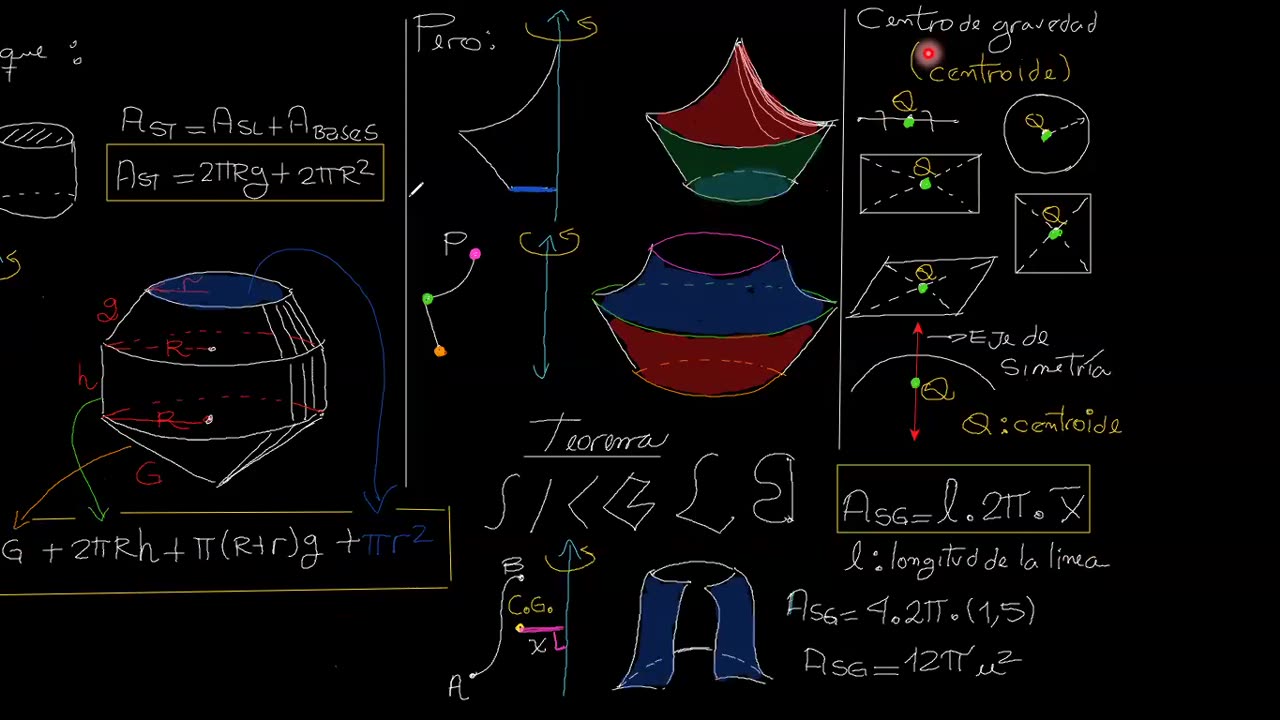 que :
A_ST = A_SL + A_Bases
A_ST = 2πRg + 2πR²
r
g
R
h
R
G
G + 2πRh + π(R+r)g + πr²
Pero:
P
Teorema
B
C.G.
x
A
Centro de gravedad
(centroide)
Q
Q
Q
Q
Q
Eje de
simetría
Q
Q : centroide
A_SG = l . 2π . x̄
l : longitud de la linea
A_SG = 4 . 2π . (1,5)
A_SG = 12π u²